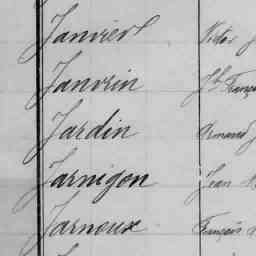 Janvier Victor J
Janvrin Jh Franç
Jardin Armand J
Jarnigon Jean
Jarnoux François